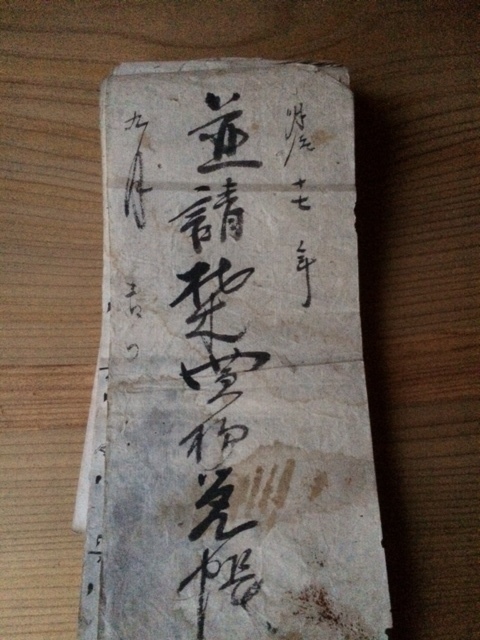 明治十七年
並請買物覚帳
九月吉日